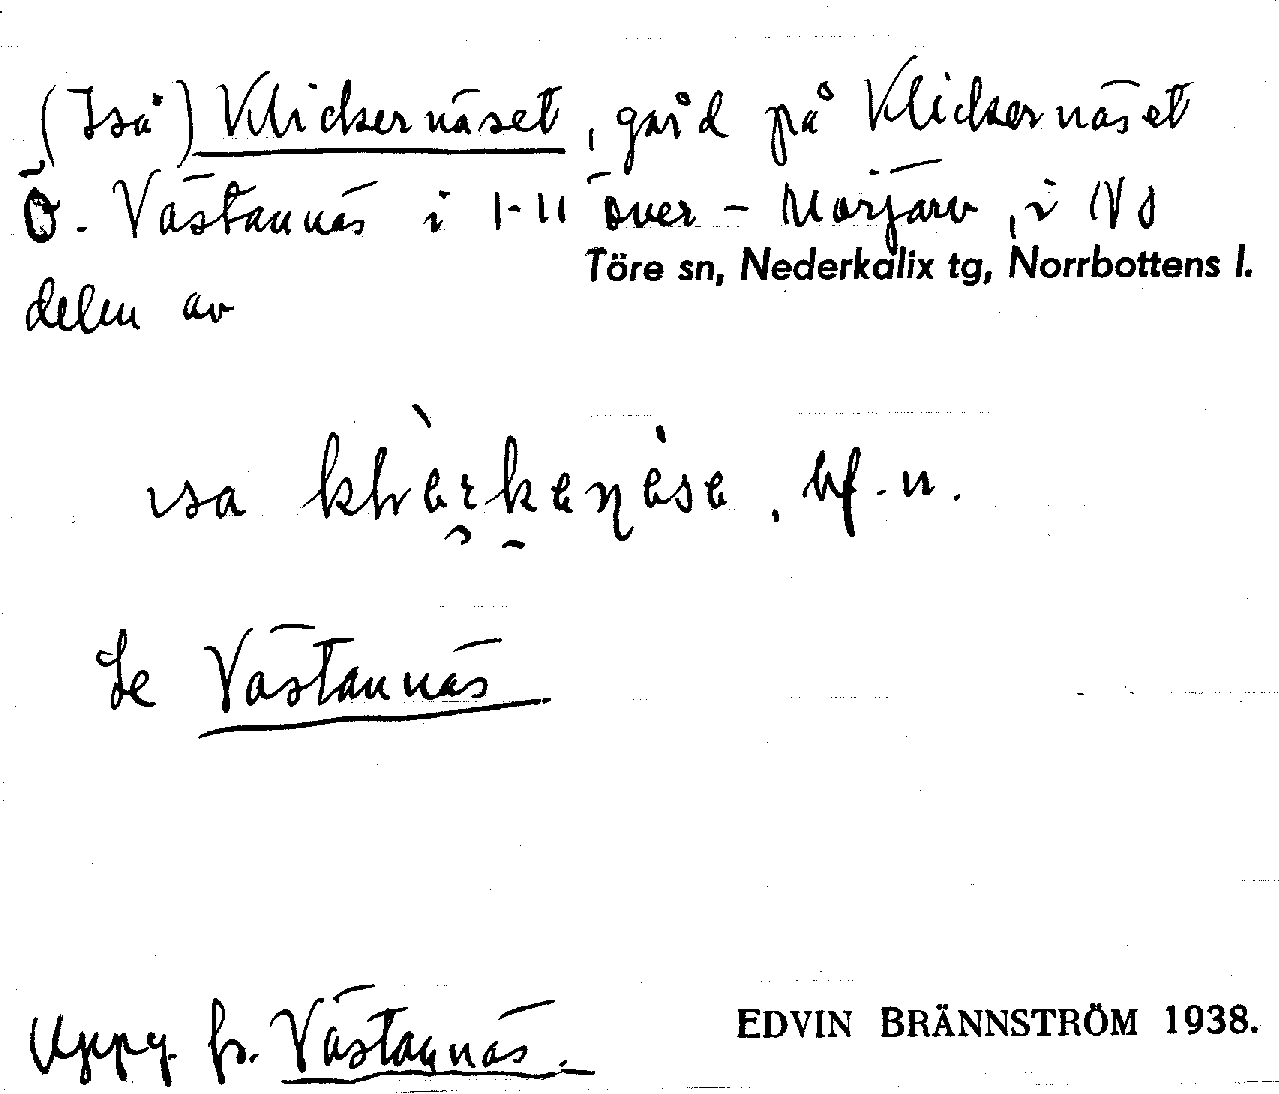 (Iså) Klickernäset, gård på Klickernäset
Ö. Västannäs i 1-11 över-Morjärv, i NÖ
Töre sn, Nederkalix tg, Norrbottens l.
delen av
isa
bf. n.
Se Västannäs
Uppg. fr. Västannäs.
EDVIN BRÄNNSTRÖM 1938.